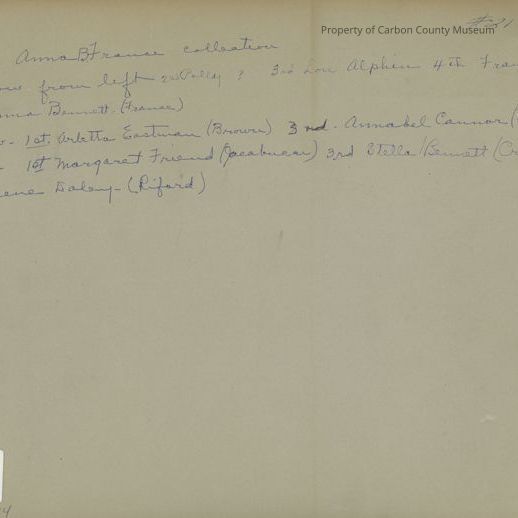 Property of Carbon County Museum
Anna B France collection
from left 2nd Polly ? 3rd Lou Alphin 4th Fran
Bennett (France)
1st. Arletta Eastman (Brown) 3rd. Annabel Connor (
1st Margaret Friend 3rd Stella Bennett (Cr
Daley - (Riford)